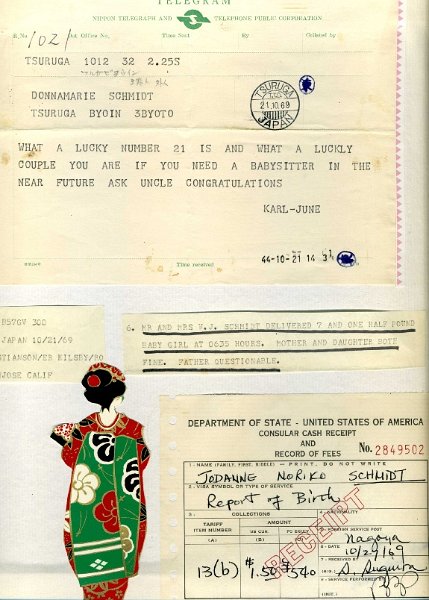 TELEGRAM
NIPPON TELEGRAPH AND TELEPHONE PUBLIC CORPORATION
R.No. 1021 Dist. Office No. Time Sent By Collated by
TSURUGA 1012 32 2.25S
DONNAMARIE SCHMIDT
TSURUGA BYOIN 3BYOTO
TSURUGA
21.10.69
JAPAN
WHAT A LUCKY NUMBER 21 IS AND WHAT A LUCKLY
COUPLE YOU ARE IF YOU NEED A BABYSITTER IN THE
NEAR FUTURE ASK UNCLE CONGRATULATIONS
KARL-JUNE
Time received
44-10-21 14 3
B57GV 300
JAPAN 10/21/69
STIANSON/ER KILSBY/RO
JOSE CALIF
6. MR AND MRS W.J. SCHMIDT DELIVERED 7 AND ONE HALF POUND
BABY GIRL AT 0635 HOURS. MOTHER AND DAUGHTER BOTH
FINE. FATHER QUESTIONABLE.
DEPARTMENT OF STATE - UNITED STATES OF AMERICA
CONSULAR CASH RECEIPT
AND
RECORD OF FEES
No. 2849502
1 - NAME (FAMILY, FIRST, MIDDLE) - PRINT, DO NOT WRITE
JODANNE NORIKO SCHMIDT
2 - VISA SYMBOL OR TYPE OF SERVICE
Report of Birth
3 - COLLECTIONS
TARIFF ITEM NUMBER
AMOUNT
(A) (B) (C)
13(b) $1.50 540
RECEIPT
5 - FOREIGN SERVICE POST
Nagoya
6 - DATE
10/29/69
7 - RECEIVED BY
S. Sugiura
8 - SERVICE PERFORMED BY